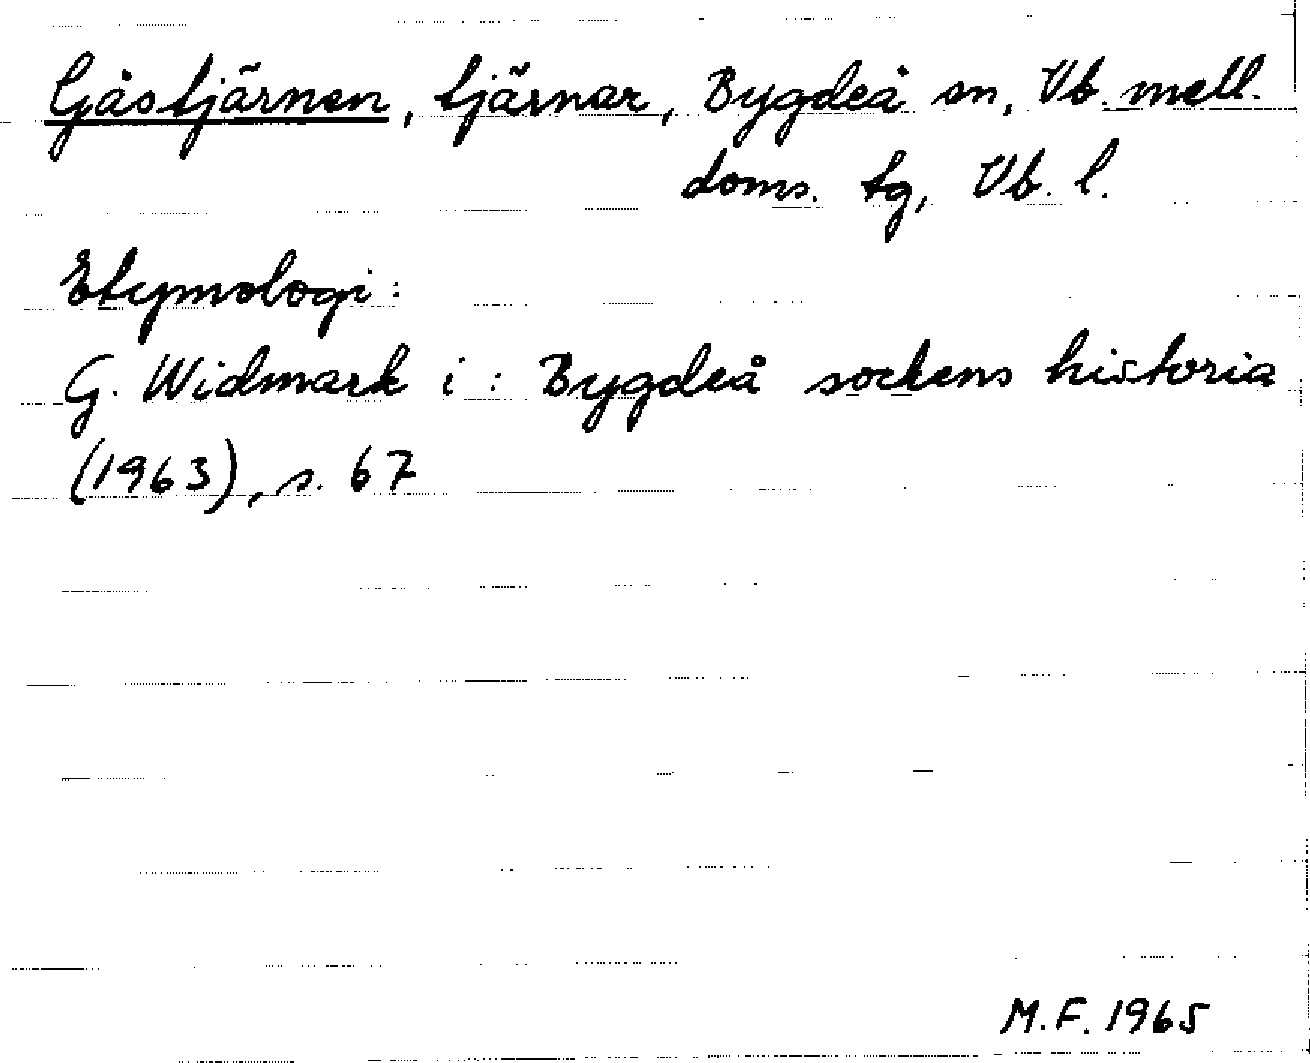 Gåstjärnen, tjärnar, Bygdeå sn, Vb. mell.
doms. tg, Vb. l.
Etymologi:
G. Widmark i: Bygdeå sockens historia
(1963), s. 67
M.F. 1965